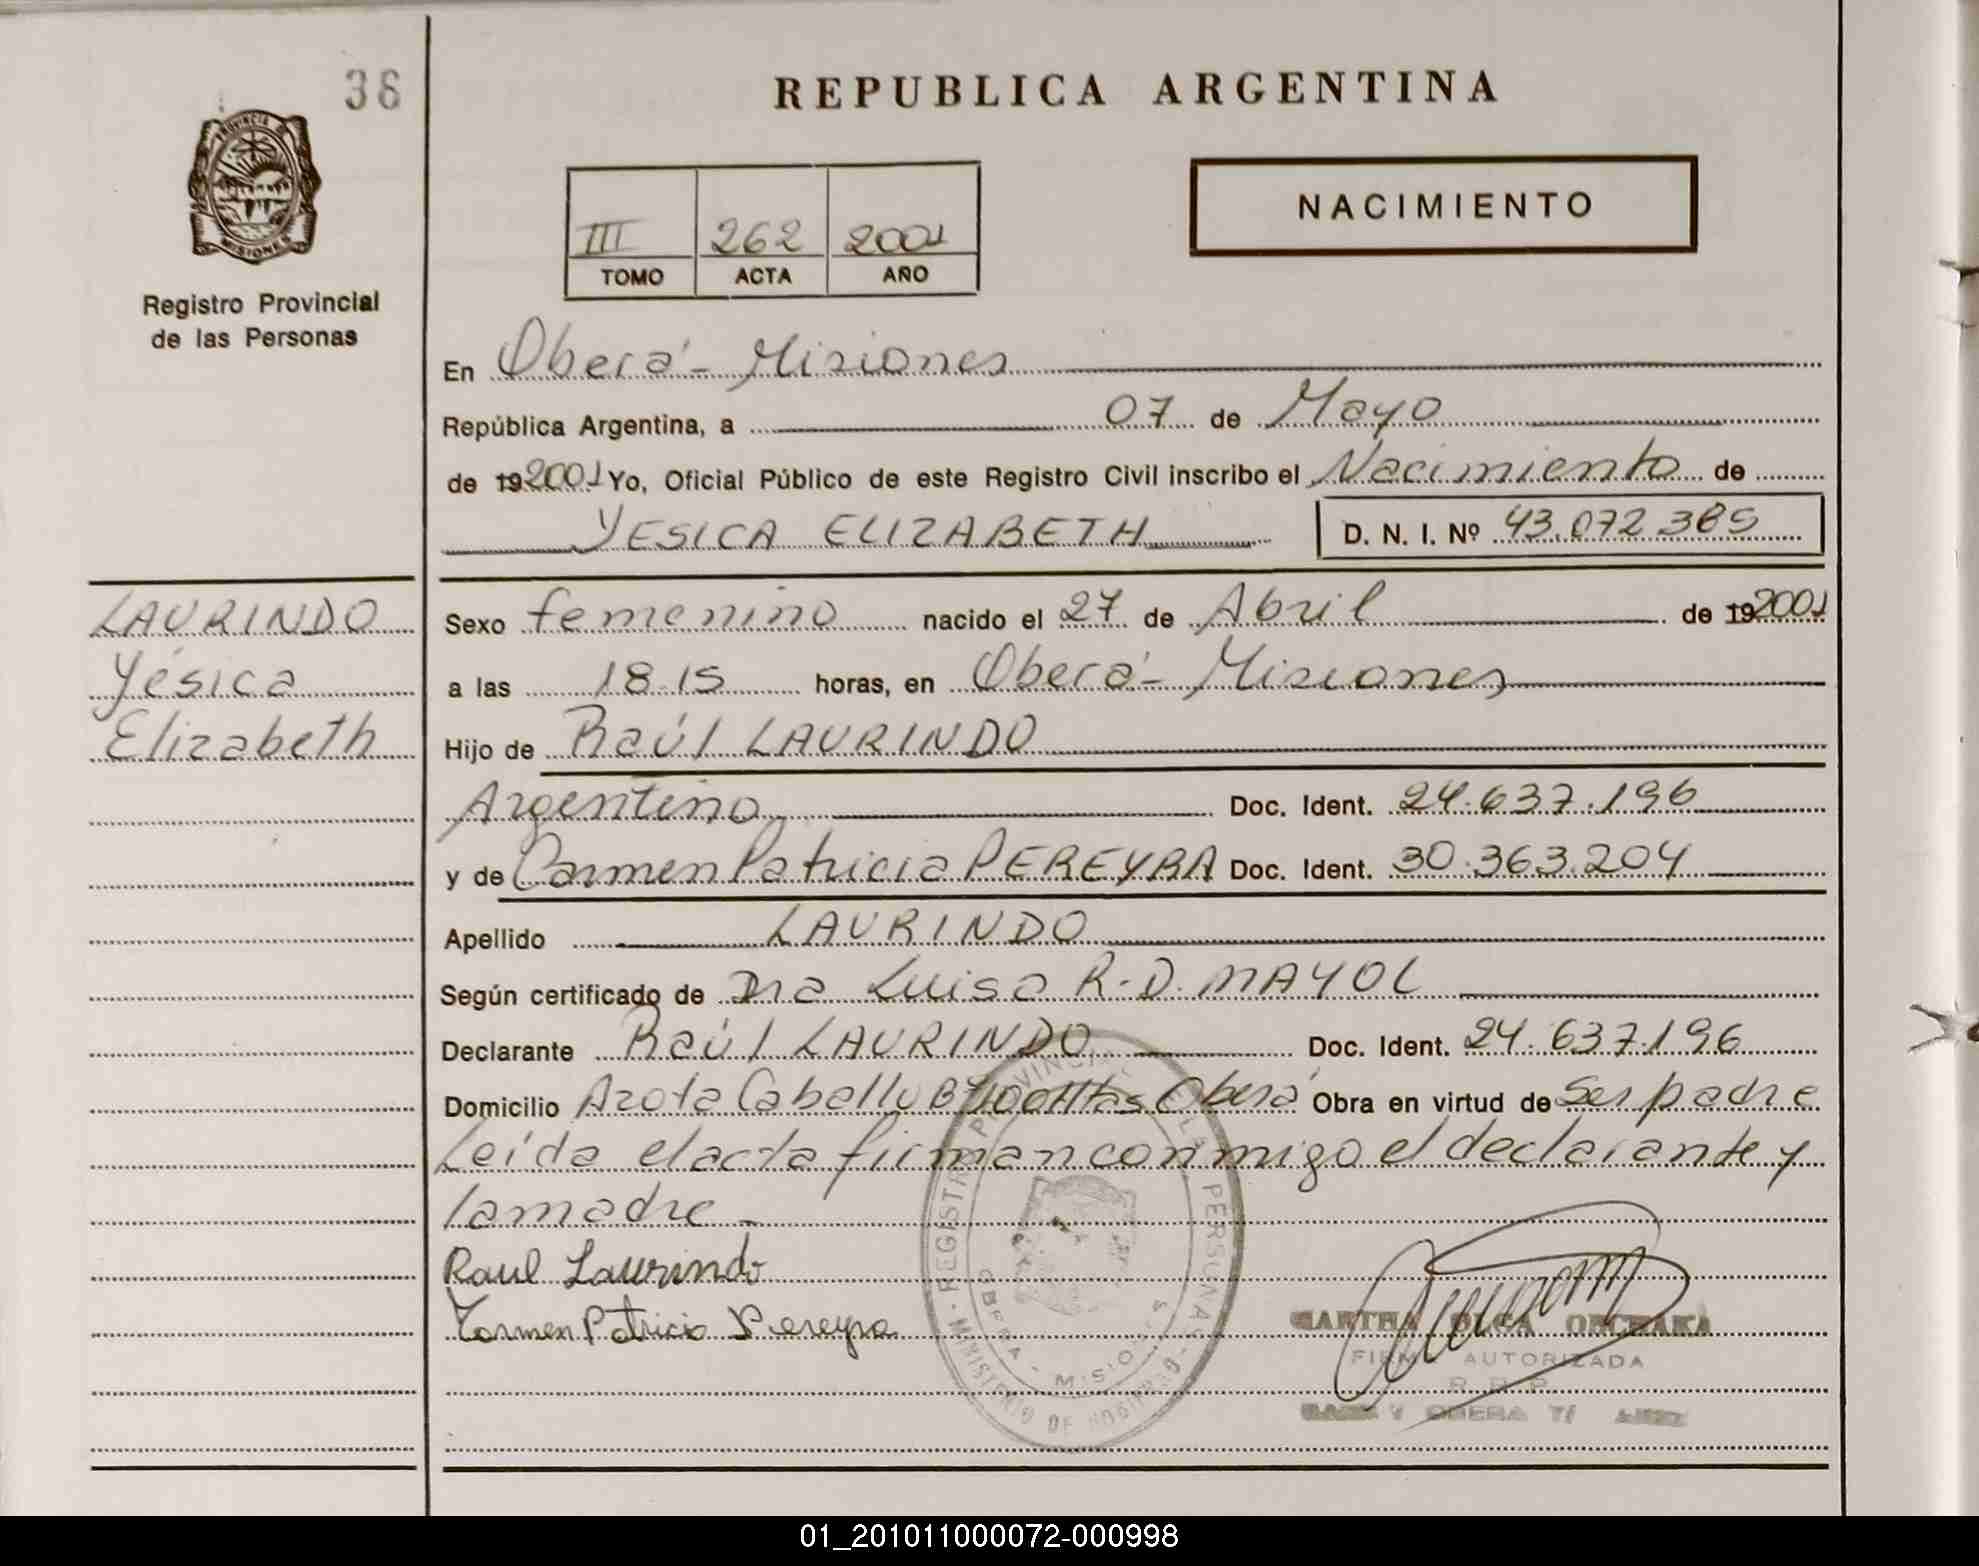 38
REPUBLICA ARGENTINA
PROVINCIA DE
MISIONES
Registro Provincial
de las Personas
NACIMIENTO
III 262 2001
TOMO ACTA AÑO
En Oberá - Misiones
República Argentina, a 07 de Mayo
de 192001 Yo, Oficial Público de este Registro Civil inscribo el Nacimiento de
YESICA ELIZABETH D. N. I. Nº 43.072.385
LAURINDO
Yésica
Elizabeth
Sexo femenino nacido el 27 de Abril de 192001
a las 18.15 horas, en Oberá - Misiones
Hijo de Raúl LAURINDO
Argentino Doc. Ident. 24.637.196
y de Carmen Patricia PEREYRA Doc. Ident. 30.363.204
Apellido LAURINDO
Según certificado de Dra Luisa R. D. MAYOL
Declarante Raúl LAURINDO Doc. Ident. 24.637.196
Domicilio Azota Caballo Bº 100 Htas Oberá Obra en virtud de Ser padre
Leída el acta firman conmigo el declarante y
la madre -
Raul Laurindo
Carmen Patricia Pereyra
REGISTRO PROVINCIAL DE LAS PERSONAS
MINISTERIO DE GOBIERNO
OBERA - MISIONES
MARTHA OLGA
FIRMA AUTORIZADA
R. P. P.
OBERA
01_201011000072-000998